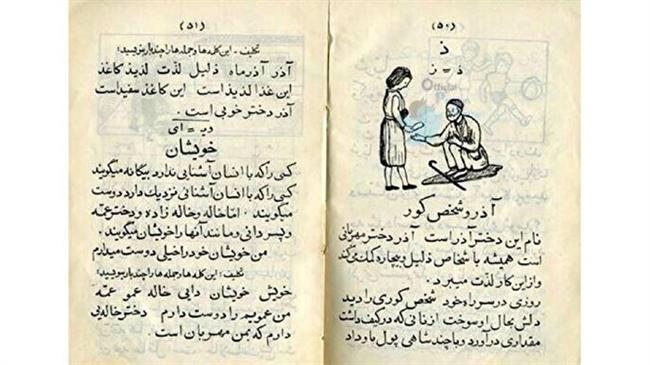 (۵۰)
ذ
ذ = ز
آذر و شخص کور
نام این دختر آذر است آذر دختر مهربانی
است همیشه با شخاص ذلیل و بیچاره کمک می کند
و از این کار لذت میبرد.
روزی در سر راه خود شخص کوری را دید
دلش بحال او سوخت از نانی که در کیف داشت
مقداری در آورد و با چند شاهی پول باو داد
(۵۱)
تکلیف - این کلمه ها و جمله ها را چند بار بنویسید:
آذر آذر ماه ذلیل لذت لذیذ کاغذ
این غذا لذیذ است این کاغذ سفید است
آذر دختر خوبی است.
ای
خویشان
کسی را که با انسان آشنایی ندارد بیگانه میگویند
کسی را که با انسان آشنائی نزدیک دارد دوست
میگویند. اما خاله و خاله زاده و دختر عمه
و پسر دائی و مانند آنها را خویشان میگویند.
من خویشان خود را خیلی دوست میدارم
تکلیف: این کلمه ها و جمله ها را چند بار بنویسید:
خویش خویشان دایی خاله عمو عمه
من عمویم را دوست دارم دختر خاله یی
دارم که بمن مهربان است.